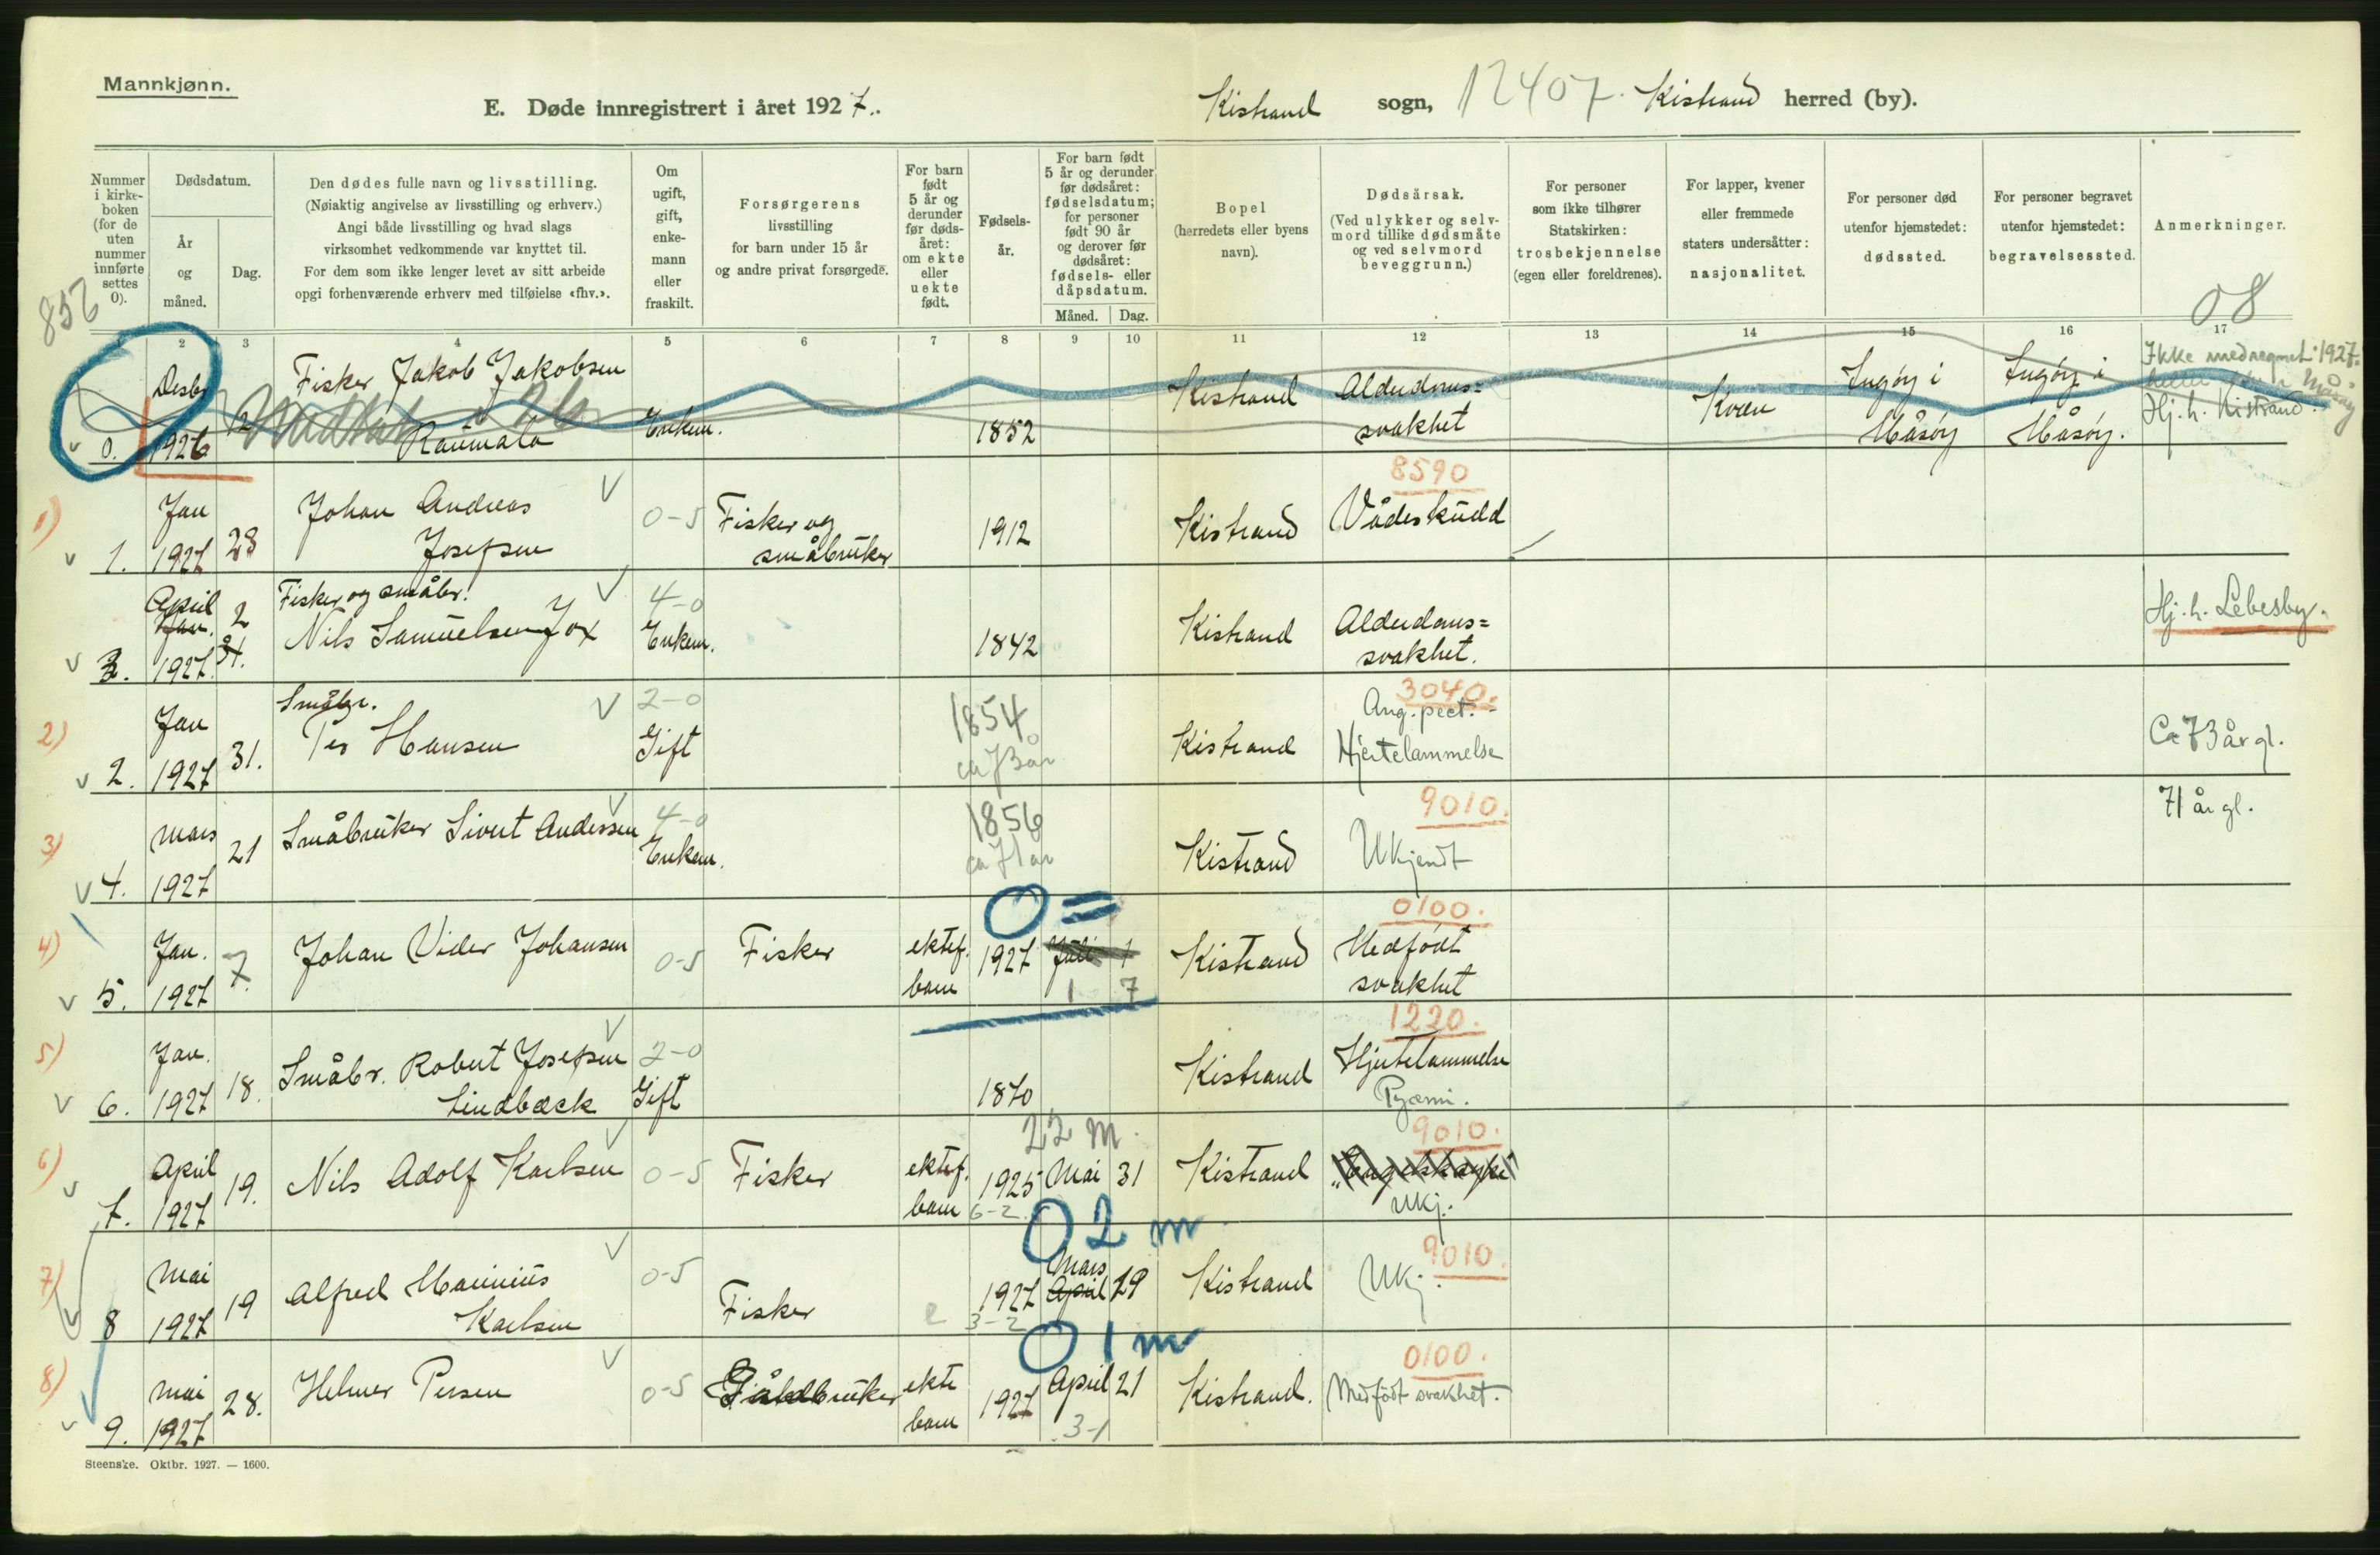 Mannkjønn.
E. Døde innregistrert i året 1927.
Kistrand sogn, 12407. Kistrand herred (by).
Nummer i kirke-boken (for de uten nummer innførte settes 0).
Dødsdatum.
År og måned.
Dag.
Den dødes fulle navn og livsstilling.
(Nøiaktig angivelse av livsstilling og erhverv.)
Angi både livsstilling og hvad slags
virksomhet vedkommende var knyttet til.
For dem som ikke lenger levet av sitt arbeide
opgi forhenværende erhverv med tilføielse «fhv.».
Om ugift, gift, enke-mann eller fraskilt.
Forsørgerens
livsstilling
for barn under 15 år
og andre privat forsørgede.
For barn født 5 år og derunder før døds-året: om ekte eller uekte født.
Fødsels-år.
For barn født 5 år og derunder før dødsåret: fødselsdatum; for personer født 90 år og derover før dødsåret: fødsels- eller dåpsdatum.
Måned. Dag.
Bopel
(herredets eller byens navn).
Dødsårsak.
(Ved ulykker og selv-mord tillike dødsmåte og ved selvmord beveggrunn.)
For personer som ikke tilhører Statskirken: trosbekjennelse (egen eller foreldrenes).
For lapper, kvener eller fremmede staters undersåtter: nasjonalitet.
For personer død utenfor hjemstedet: dødssted.
For personer begravet utenfor hjemstedet: begravelsessted.
Anmerkninger.
852
08
2 3 4 5 6 7 8 9 10 11 12 13 14 15 16 17
0. Desbr 1926 12 Fisker Jakob Jakobsen Raumala Enkem. 1852 Kistrand Alderdoms=svakhet Kven Ingøy i Måsøy Ingøy i Måsøy. Ikke medregnet 1927. Hj. h. Kistrand.
1) 1. Jan 1927 23 Johan Andreas Josefsen 0-5 Fisker og småbruker 1912 Kistrand 8590 Vådeskudd
3. April Jan. 1927. 2 31. Fisker og småbr. Nils Samuelsen Jox 4-0 Enkem. 1842 Kistrand Alderdoms=svakhet. Hj. h. Lebesby.
2) 2. Jan 1927 31. Småbr. Per Hansen 2-0 Gift 1854 ca 73 år Kistrand 3040. Ang. pect. - Hjertelammelse Ca 73 år gl.
3) 4. Mars 1927 21 Småbruker Sivert Anderssen 4-0 Enkem. 1856 ca 71 år Kistrand 9010. Ukjendt 71 år gl.
4) 5. Jan. 1927 7. Johan Vider Johansen 0-5 Fisker ektef. barn 0 = 1927 Juli 1 1 7 Kistrand 0100. Medfødt svakhet
5) 6. Jan. 1927 18. Småbr. Robert Josefsen Lindbæck 2-0 Gift 1870 Kistrand 1220. Hjertelammelse Pyæmi.
6) 7. April 1927 19. Nils Adolf Karlsen 0-5 Fisker ektef. barn 22 m. 1925 Mai 31 6-2 Kistrand 9010. Ukj.
7) 8 Mai 1927 19 Alfred Marinius Karlsen 0-5 Fisker e 0 2 m 1927 Mars April 29 3-2 Kistrand 9010. Ukj.
8) 9. Mai 1927 28. Helmer Persen 0-5 ekte barn 0 1 m 1927 April 21 3-1 Kistrand. 0100. Medfødt svakhet.
Steenske. Oktbr. 1927. — 1600.